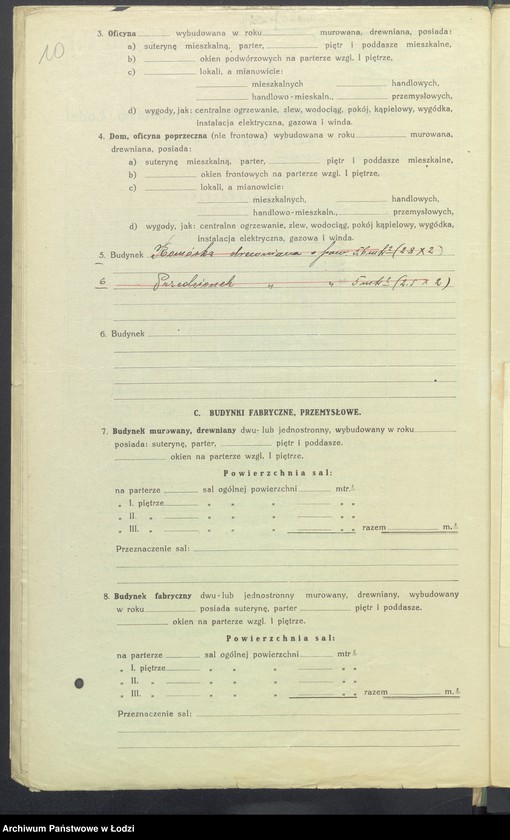 10
3. Oficyna wybudowana w roku murowana, drewniana, posiada:
a) suterynę mieszkalną, parter, piętr i poddasze mieszkalne,
b) okien podwórzowych na parterze wzgl. I piętrze,
c) lokali, a mianowicie:
mieszkalnych handlowych,
handlowo-mieskaln., przemysłowych,
d) wygody, jak: centralne ogrzewanie, zlew, wodociąg, pokój, kąpielowy, wygódka,
instalacja elektryczna, gazowa i winda.
4. Dom, oficyna poprzeczna (nie frontowa) wybudowana w roku murowana,
drewniana, posiada:
a) suterynę mieszkalną, parter, piętr i poddasze mieszkalne,
b) okien frontowych na parterze wzgl. I piętrze,
c) lokali, a mianowicie:
mieszkalnych, handlowych,
handlowo-mieszkaln., przemysłowych,
d) wygody, jak: centralne ogrzewanie, zlew, wodociąg, pokój kąpielowy, wygódka,
instalacja elektryczna, gazowa i winda.
5. Budynek Komórka drewniana o pow. 56 mt² (28 X 2)
6 Przedsionek " " 5 mt² (2.5 X 2)
6. Budynek
C. BUDYNKI FABRYCZNE, PRZEMYSŁOWE.
7. Budynek murowany, drewniany dwu- lub jednostronny, wybudowany w roku
posiada: suterynę, parter, piętr i poddasze.
okien na parterze wzgl. I piętrze.
Powierzchnia sal:
na parterze sal ogólnej powierzchni mtr.²
„ I. piętrze „ „ „ „ „
„ II. „ „ „ „ „ „
„ III. „ „ „ „ „ „ razem m.²
Przeznaczenie sal:
8. Budynek fabryczny dwu-lub jednostronny murowany, drewniany, wybudowany
w roku posiada suterynę, parter piętr i poddasze.
okien na parterze wzgl. I piętrze.
Powierzchnia sal:
na parterze sal ogólnej powierzchni mtr²
„ I. piętrze „ „ „ „ „
„ II. „ „ „ „ „ „
„ III. „ „ „ „ „ „ razem m.²
Przeznaczenie sal:
Archiwum Państwowe w Łodzi